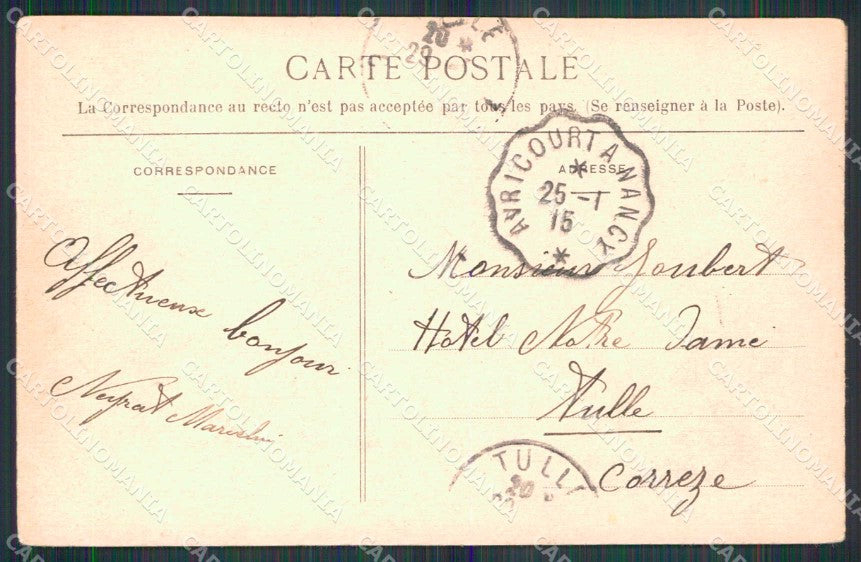 CARTE POSTALE
La Correspondance au recto n'est pas acceptée par tous les pays. (Se renseigner à la Poste).
CORRESPONDANCE
ADRESSE
AVRICOURT A NANCY
25-1
15
Affectueux bonjour
Monsieur Joubert
Hôtel Notre Dame
Tulle
Correze
TULLE
20
CARTOLINOMANIA